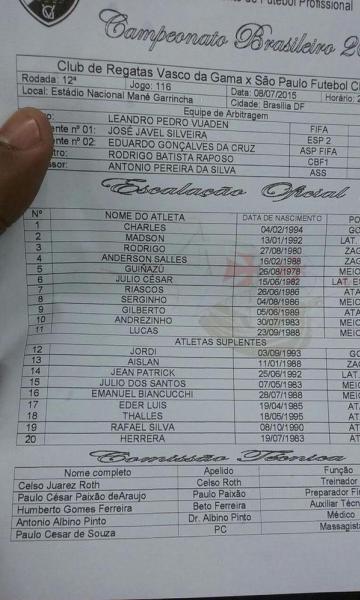 de Futebol Profissional
Campeonato Brasileiro 20
Club de Regatas Vasco da Gama x São Paulo Futebol Cl
Rodada: 12ª Jogo: 116 Horário: 2
Local: Estádio Nacional Mané Garrincha Data: 08/07/2015
Cidade: Brasília DF
Equipe de Arbitragem
LEANDRO PEDRO VUADEN FIFA
ente nº 01: JOSÉ JAVEL SILVEIRA ESP 2
ente nº 02: EDUARDO GONÇALVES DA CRUZ ASP FIFA
tro: RODRIGO BATISTA RAPOSO CBF1
ssor: ANTONIO PEREIRA DA SILVA ASS
Escalação Oficial
Nº NOME DO ATLETA DATA DE NASCIMENTO PO
1 CHARLES 04/02/1994 GO
2 MADSON 13/01/1992 LAT.
3 RODRIGO 27/08/1980 ZAG
4 ANDERSON SALLES 16/02/1988 ZAG
5 GUIÑAZÚ 26/08/1978 MEIO
6 JULIO CÉSAR 15/06/1982 LAT. ES
7 RIASCOS 26/06/1986 ATA
8 SERGINHO 04/08/1986 MEIO
9 GILBERTO 05/06/1989 ATA
10 ANDREZINHO 30/07/1983 MEIO
11 LUCAS 23/09/1988 MEIO
ATLETAS SUPLENTES
12 JORDI 03/09/1993 GO
13 AISLAN 11/01/1988 ZAG
14 JEAN PATRICK 25/06/1992 LAT.
15 JULIO DOS SANTOS 07/05/1983 MEIO
16 EMANUEL BIANCUCCHI 28/07/1988 MEIO
17 EDER LUIS 19/04/1985 ATA
18 THALLES 18/05/1995 ATA
19 RAFAEL SILVA 08/10/1990 ATA
20 HERRERA 19/07/1983 ATA
Comissão Técnica
Nome completo Apelido Função
Celso Juarez Roth Celso Roth Treinador
Paulo César Paixão deAraujo Paulo Paixão Preparador Fí
Humberto Gomes Ferreira Beto Ferreira Auxiliar Técn
Antonio Albino Pinto Dr. Albino Pinto Médico
Paulo Cesar de Souza PC Massagist